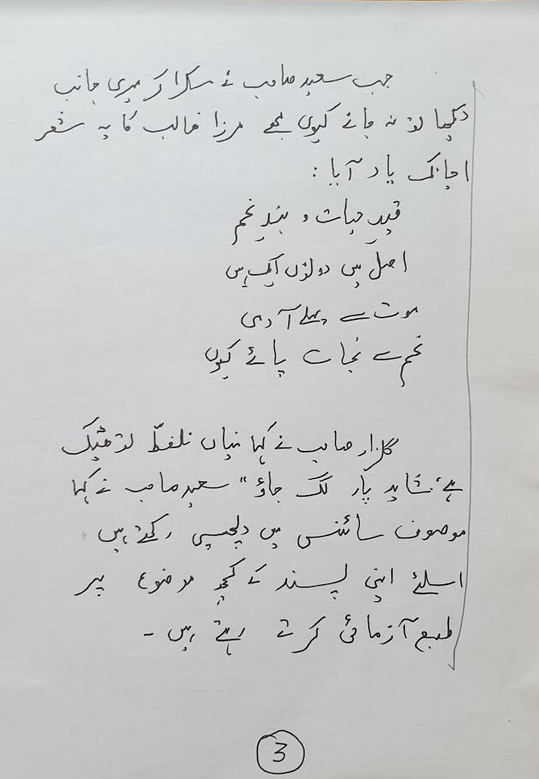 جب سعید صاحب نے مسکرا کر میری جانب
دیکھا تو نہ جانے کیوں مجھے مرزا غالب کا یہ شعر
اچانک یاد آیا :
قیدِ حیات و بندِ غم
اصل میں دونوں ایک ہیں
موت سے پہلے آدمی
غم سے نجات پائے کیوں
گلزار صاحب نے کہا میاں تلفظّ تو ٹھیک
ہے، شاید پار لگ جاؤ" سعید صاحب نے کہا
موصوف سائنس میں دلچسپی رکھتے ہیں
اسلئے اپنی پسند کے کچھ موضوع پر
طبع آزمائی کرتے رہتے ہیں ۔
3